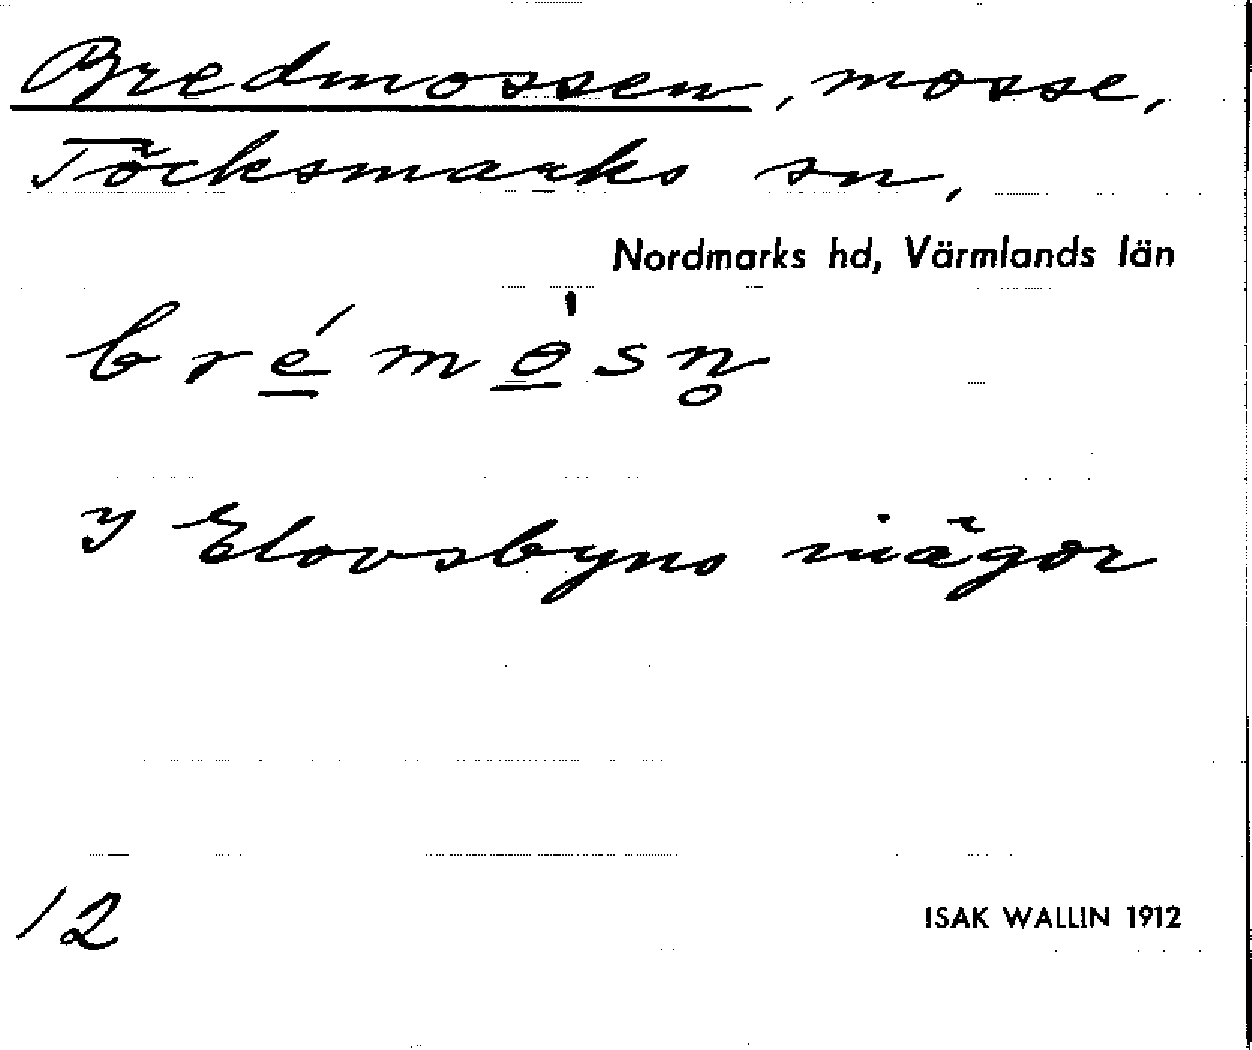 Bredmossen, mosse,
Töcksmarks sn,
Nordmarks hd, Värmlands län
bré̲mò̲sn̥
Elovsbyns inägor
12
ISAK WALLIN 1912